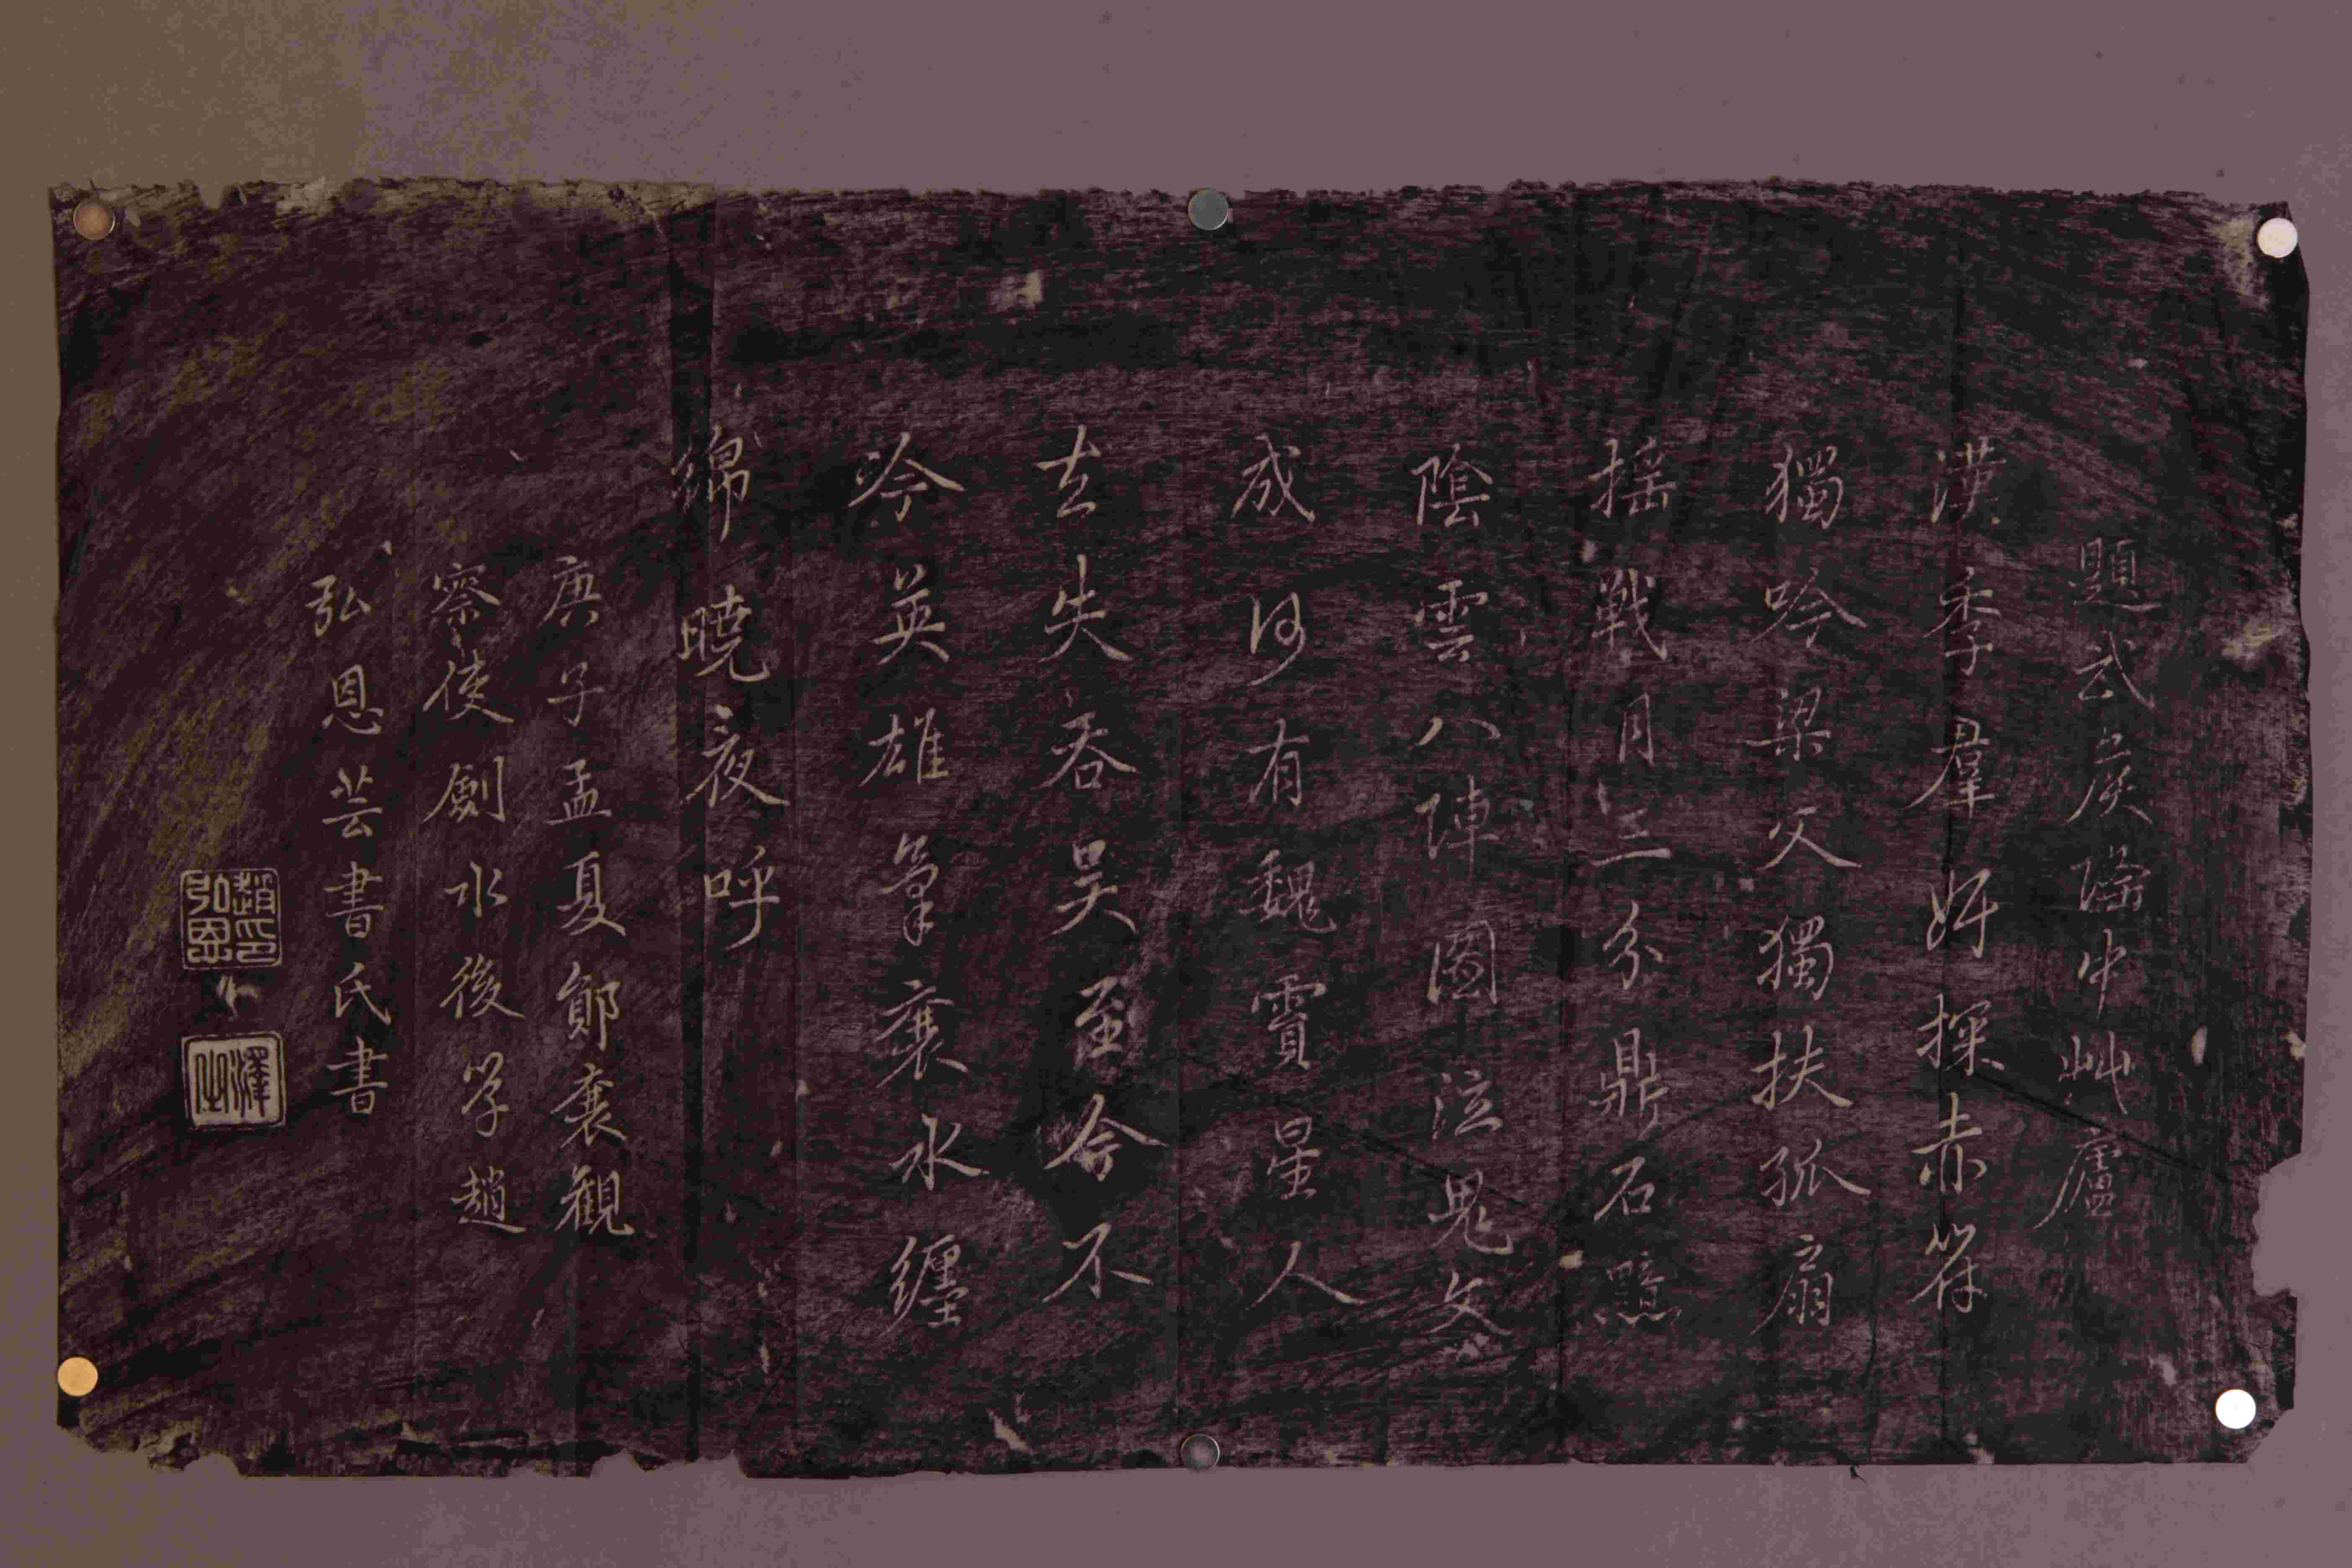 題武侯隆中艸廬
漢季羣奸探赤符
獨吟梁父獨扶孤扇
揺戰月三分鼎石黯
陰雲八陣圖泣鬼文
成何有魏賓星人
去失吞吴至今不
冷英雄筆襄水纏
綿曉夜呼
庚子孟夏鄖襄觀
察使劍水後学趙
弘恩芸書氏書
趙弘恩印
澤